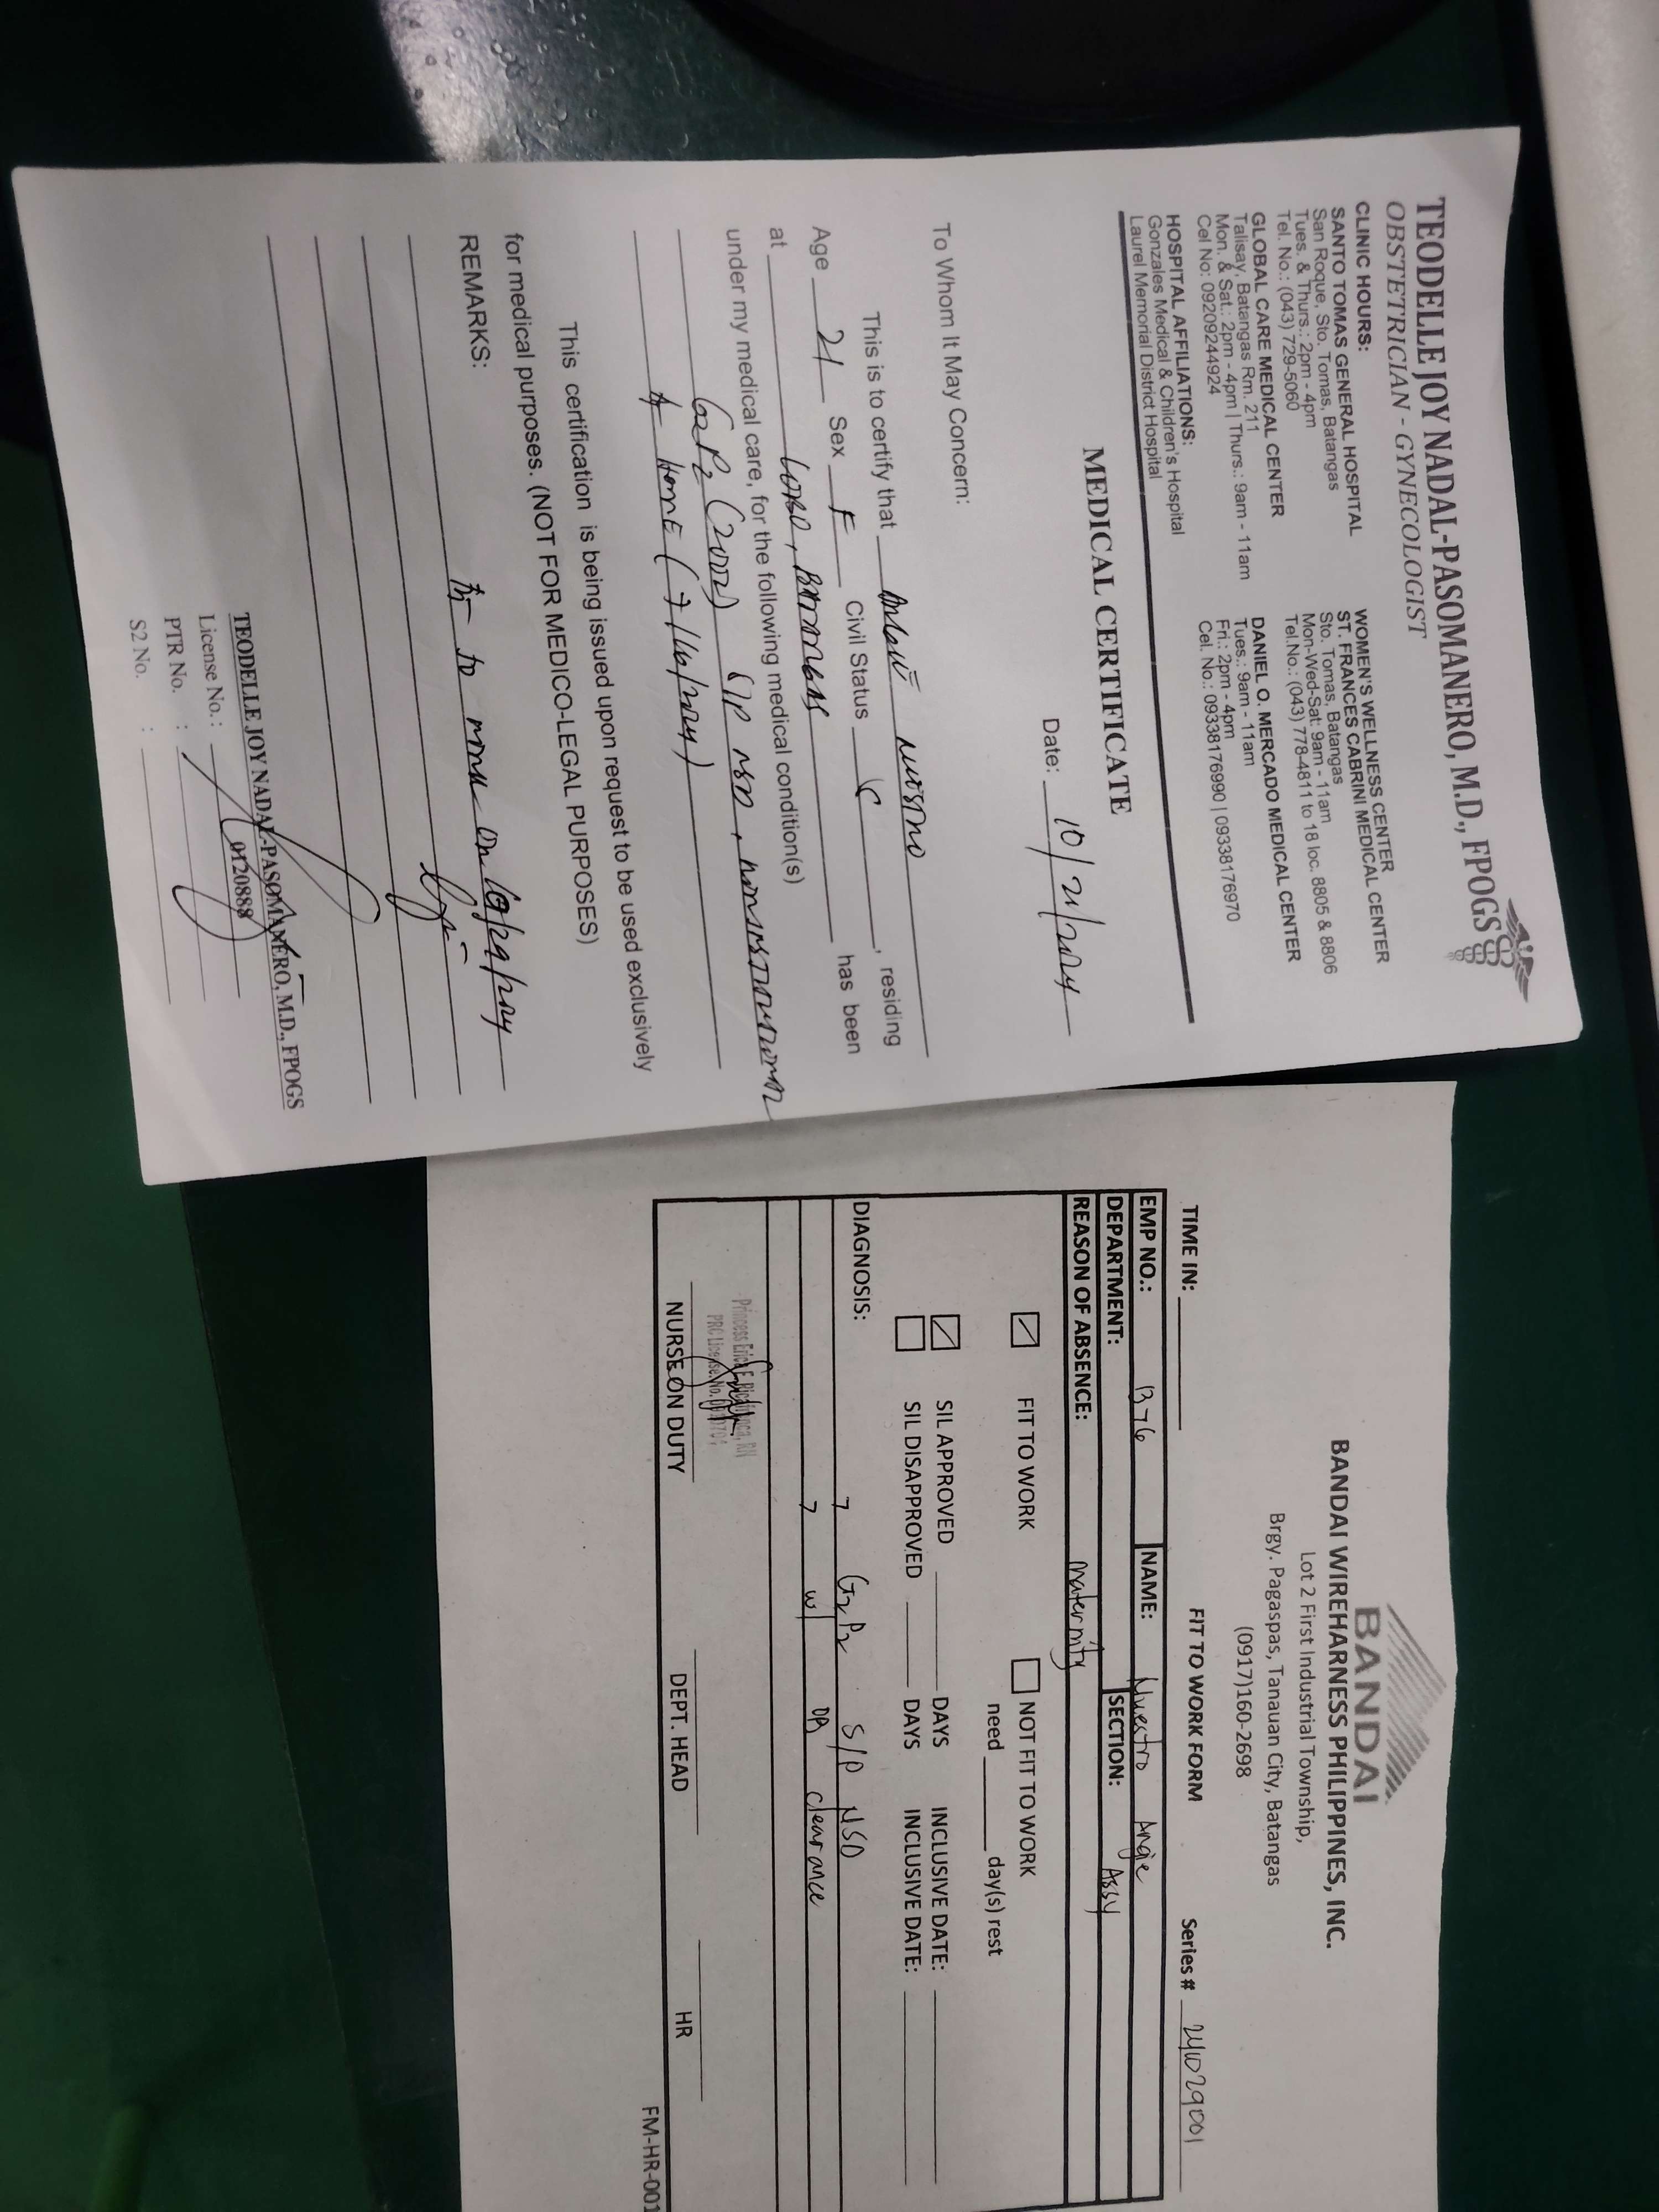 TEODELLE JOY NADAL-PASOMANERO, M.D., FPOGS
OBSTETRICIAN - GYNECOLOGIST
CLINIC HOURS:
SANTO TOMAS GENERAL HOSPITAL
San Roque, Sto. Tomas, Batangas
Tues. & Thurs.: 2pm - 4pm
Tel. No.: (043) 729-5060
GLOBAL CARE MEDICAL CENTER
Talisay, Batangas Rm. 211
Mon. & Sat.: 2pm - 4pm | Thurs.: 9am - 11am
Cel No: 09209244924
HOSPITAL AFFILIATIONS:
Gonzales Medical & Children's Hospital
Laurel Memorial District Hospital
WOMEN'S WELLNESS CENTER
ST. FRANCES CABRINI MEDICAL CENTER
Sto. Tomas, Batangas
Mon-Wed-Sat: 9am - 11am
Tel.No.: (043) 778-4811 to 18 loc. 8805 & 8806
DANIEL O. MERCADO MEDICAL CENTER
Tues.: 9am - 11am
Fri.: 2pm - 4pm
Cel. No.: 09338176990 | 09338176970
MEDICAL CERTIFICATE
Date: 10/21/2024
To Whom It May Concern:
This is to certify that
Age 21 Sex F Civil Status S, residing
at LOBO, BATANGAS has been
under my medical care, for the following medical condition(s)
G2P2 (2002) S/P NSD,
@ HOME (7/16/2024)
This certification is being issued upon request to be used exclusively
for medical purposes. (NOT FOR MEDICO-LEGAL PURPOSES)
REMARKS:
to work on 10/29/2024
TEODELLE JOY NADAL-PASOMANERO, M.D., FPOGS
License No.: 0120888
PTR No. :
S2 No. :
BANDAI
BANDAI WIREHARNESS PHILIPPINES, INC.
Lot 2 First Industrial Township,
Brgy. Pagaspas, Tanauan City, Batangas
(0917)160-2698
FIT TO WORK FORM
TIME IN: Series # 241029001
EMP NO.: 1376 NAME: Nuestro Angie
DEPARTMENT: SECTION: Assy
REASON OF ABSENCE: Maternity
FIT TO WORK NOT FIT TO WORK
need day(s) rest
SIL APPROVED DAYS INCLUSIVE DATE:
SIL DISAPPROVED DAYS INCLUSIVE DATE:
DIAGNOSIS:
G2P2 S/P NSD
w/ OB clearance
NURSE ON DUTY DEPT. HEAD HR
FM-HR-001